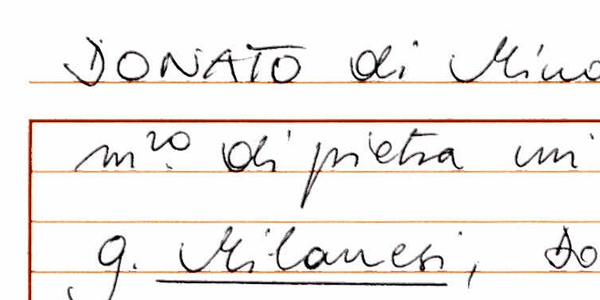 DONATO di Mino
m.ro di pietra in
g. Milanesi, Do